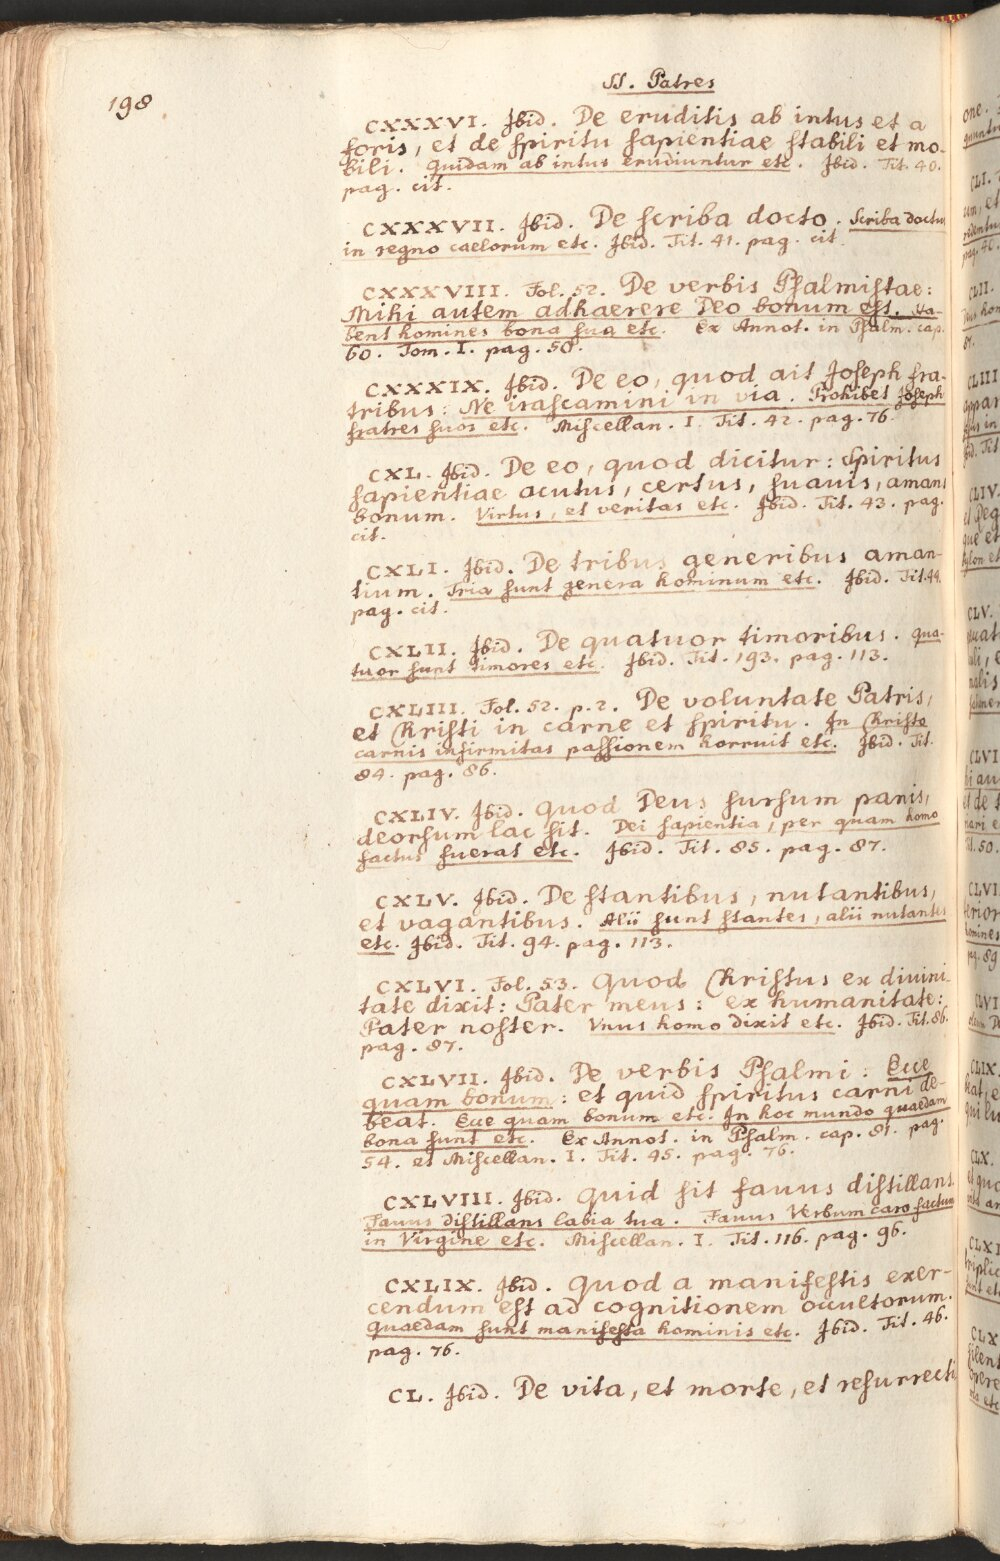 198
SS. Patres
CXXXVI. Ibid. De eruditis ab intus et a
foris, et de spiritu sapientiae stabili et mo-
bili. Quidam ab intus erudiuntur etc. Ibid. Tit. 40.
pag. cit.
CXXXVII. Ibid. De scriba docto. Scriba doctus
in regno caelorum etc. Ibid. Tit. 41. pag. cit.
CXXXVIII. Fol. 52. De verbis Psalmistae:
Mihi autem adhaerere Deo bonum est. Ha-
bent homines bona sua etc. Ex Annot. in Psalm. cap.
60. Tom. I. pag. 50.
CXXXIX. Ibid. De eo, quod ait Joseph fra-
tribus: Ne irascamini in via. Prohibet Joseph
fratres suos etc. Miscellan. I. Tit. 42. pag. 76.
CXL. Ibid. De eo, quod dicitur: Spiritus
sapientiae acutus, certus, suauis, amans
bonum. Virtus, et veritas etc. Ibid. Tit. 43. pag.
cit.
CXLI. Ibid. De tribus generibus aman-
tium. Tria sunt genera hominum etc. Ibid. Tit. 44.
pag. cit.
CXLII. Ibid. De quatuor timoribus. Qua-
tuor sunt timores etc. Ibid. Tit. 193. pag. 113.
CXLIII. Fol. 52. p. 2. De voluntate Patris,
et Christi in carne et spiritu. In Christo
carnis infirmitas passionem horruit etc. Ibid. Tit.
84. pag. 86.
CXLIV. Ibid. Quod Deus sursum panis,
deorsum lac sit. Dei sapientia, per quam homo
factus fuerat etc. Ibid. Tit. 85. pag. 87.
CXLV. Ibid. De stantibus, nutantibus,
et vagantibus. Alii sunt stantes, alii nutantes
etc. Ibid. Tit. 94. pag. 113.
CXLVI. Fol. 53. Quod Christus ex diuini-
tate dixit: Pater meus: ex humanitate:
Pater noster. Vnus homo dixit etc. Ibid. Tit. 86.
pag. 87.
CXLVII. Ibid. De verbis Psalmi: Ecce
quam bonum: et quid spiritus carni de-
beat. Ecce quam bonum etc. In hoc mundo quaedam
bona sunt etc. Ex Annot. in Psalm. cap. 81. pag.
54. et Miscellan. I. Tit. 45. pag. 76.
CXLVIII. Ibid. Quid sit fauus distillans.
Fauus distillans labia tua. Fauus Verbum caro factum
in Virgine etc. Miscellan. I. Tit. 116. pag. 96.
CXLIX. Ibid. Quod a manifestis exer-
cendum est ad cognitionem occultorum.
Quaedam sunt manifesta hominis etc. Ibid. Tit. 46.
pag. 76.
CL. Ibid. De vita, et morte, et resurrecti